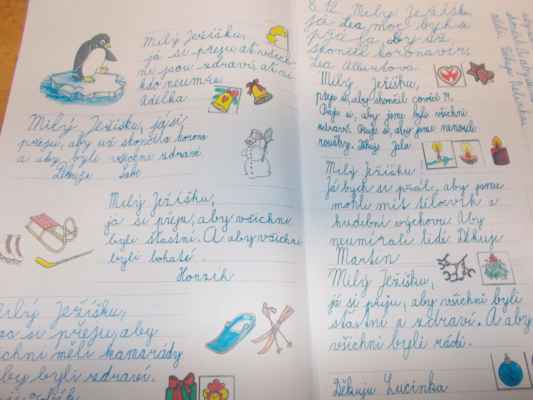 Milý Ježíšku,
já si přeju ať všichni
jsou zdraví, ať ni
kdo neumře
Adélka
Milý Ježíšku, já si
přeju, aby už skončila korona
a aby byli všichni zdraví.
Děkuje
Milý Ježíšku,
já si přeju, aby všichni
byli šťastní. A aby všichni
byli bohatí.
Honzík
Milý Ježíšku,
si přeju, aby
všichni měli kamarády
aby byli zdraví.
8. 12. Milý Ježíšku
já Lea moc bych si
přála, aby už
skončil koronavir.
Lea
Milý Ježíšku,
přeju si, aby skončil covid 19.
Přeju si, aby jsme byli všichni
zdraví. Přeju si, aby jsme nenosili
roušky. Děkuji
Milý Ježíšku
Já bych si přál, aby jsme
mohli mít tělocvik a
hudební výchovu. Aby
neumírali lidé. Děkuje
Martin
Milý Ježíšku,
já si přeju, aby všichni byli
šťastní a zdraví. A aby
všichni byli rádi.
Děkuju Lucinka